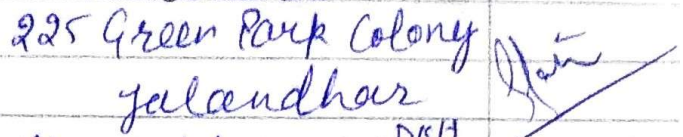 225 Green Park Colony
Jalandhar